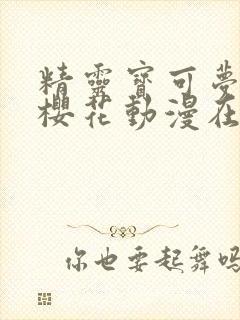 精靈寶可夢
櫻花動漫在
你也要起舞嗎